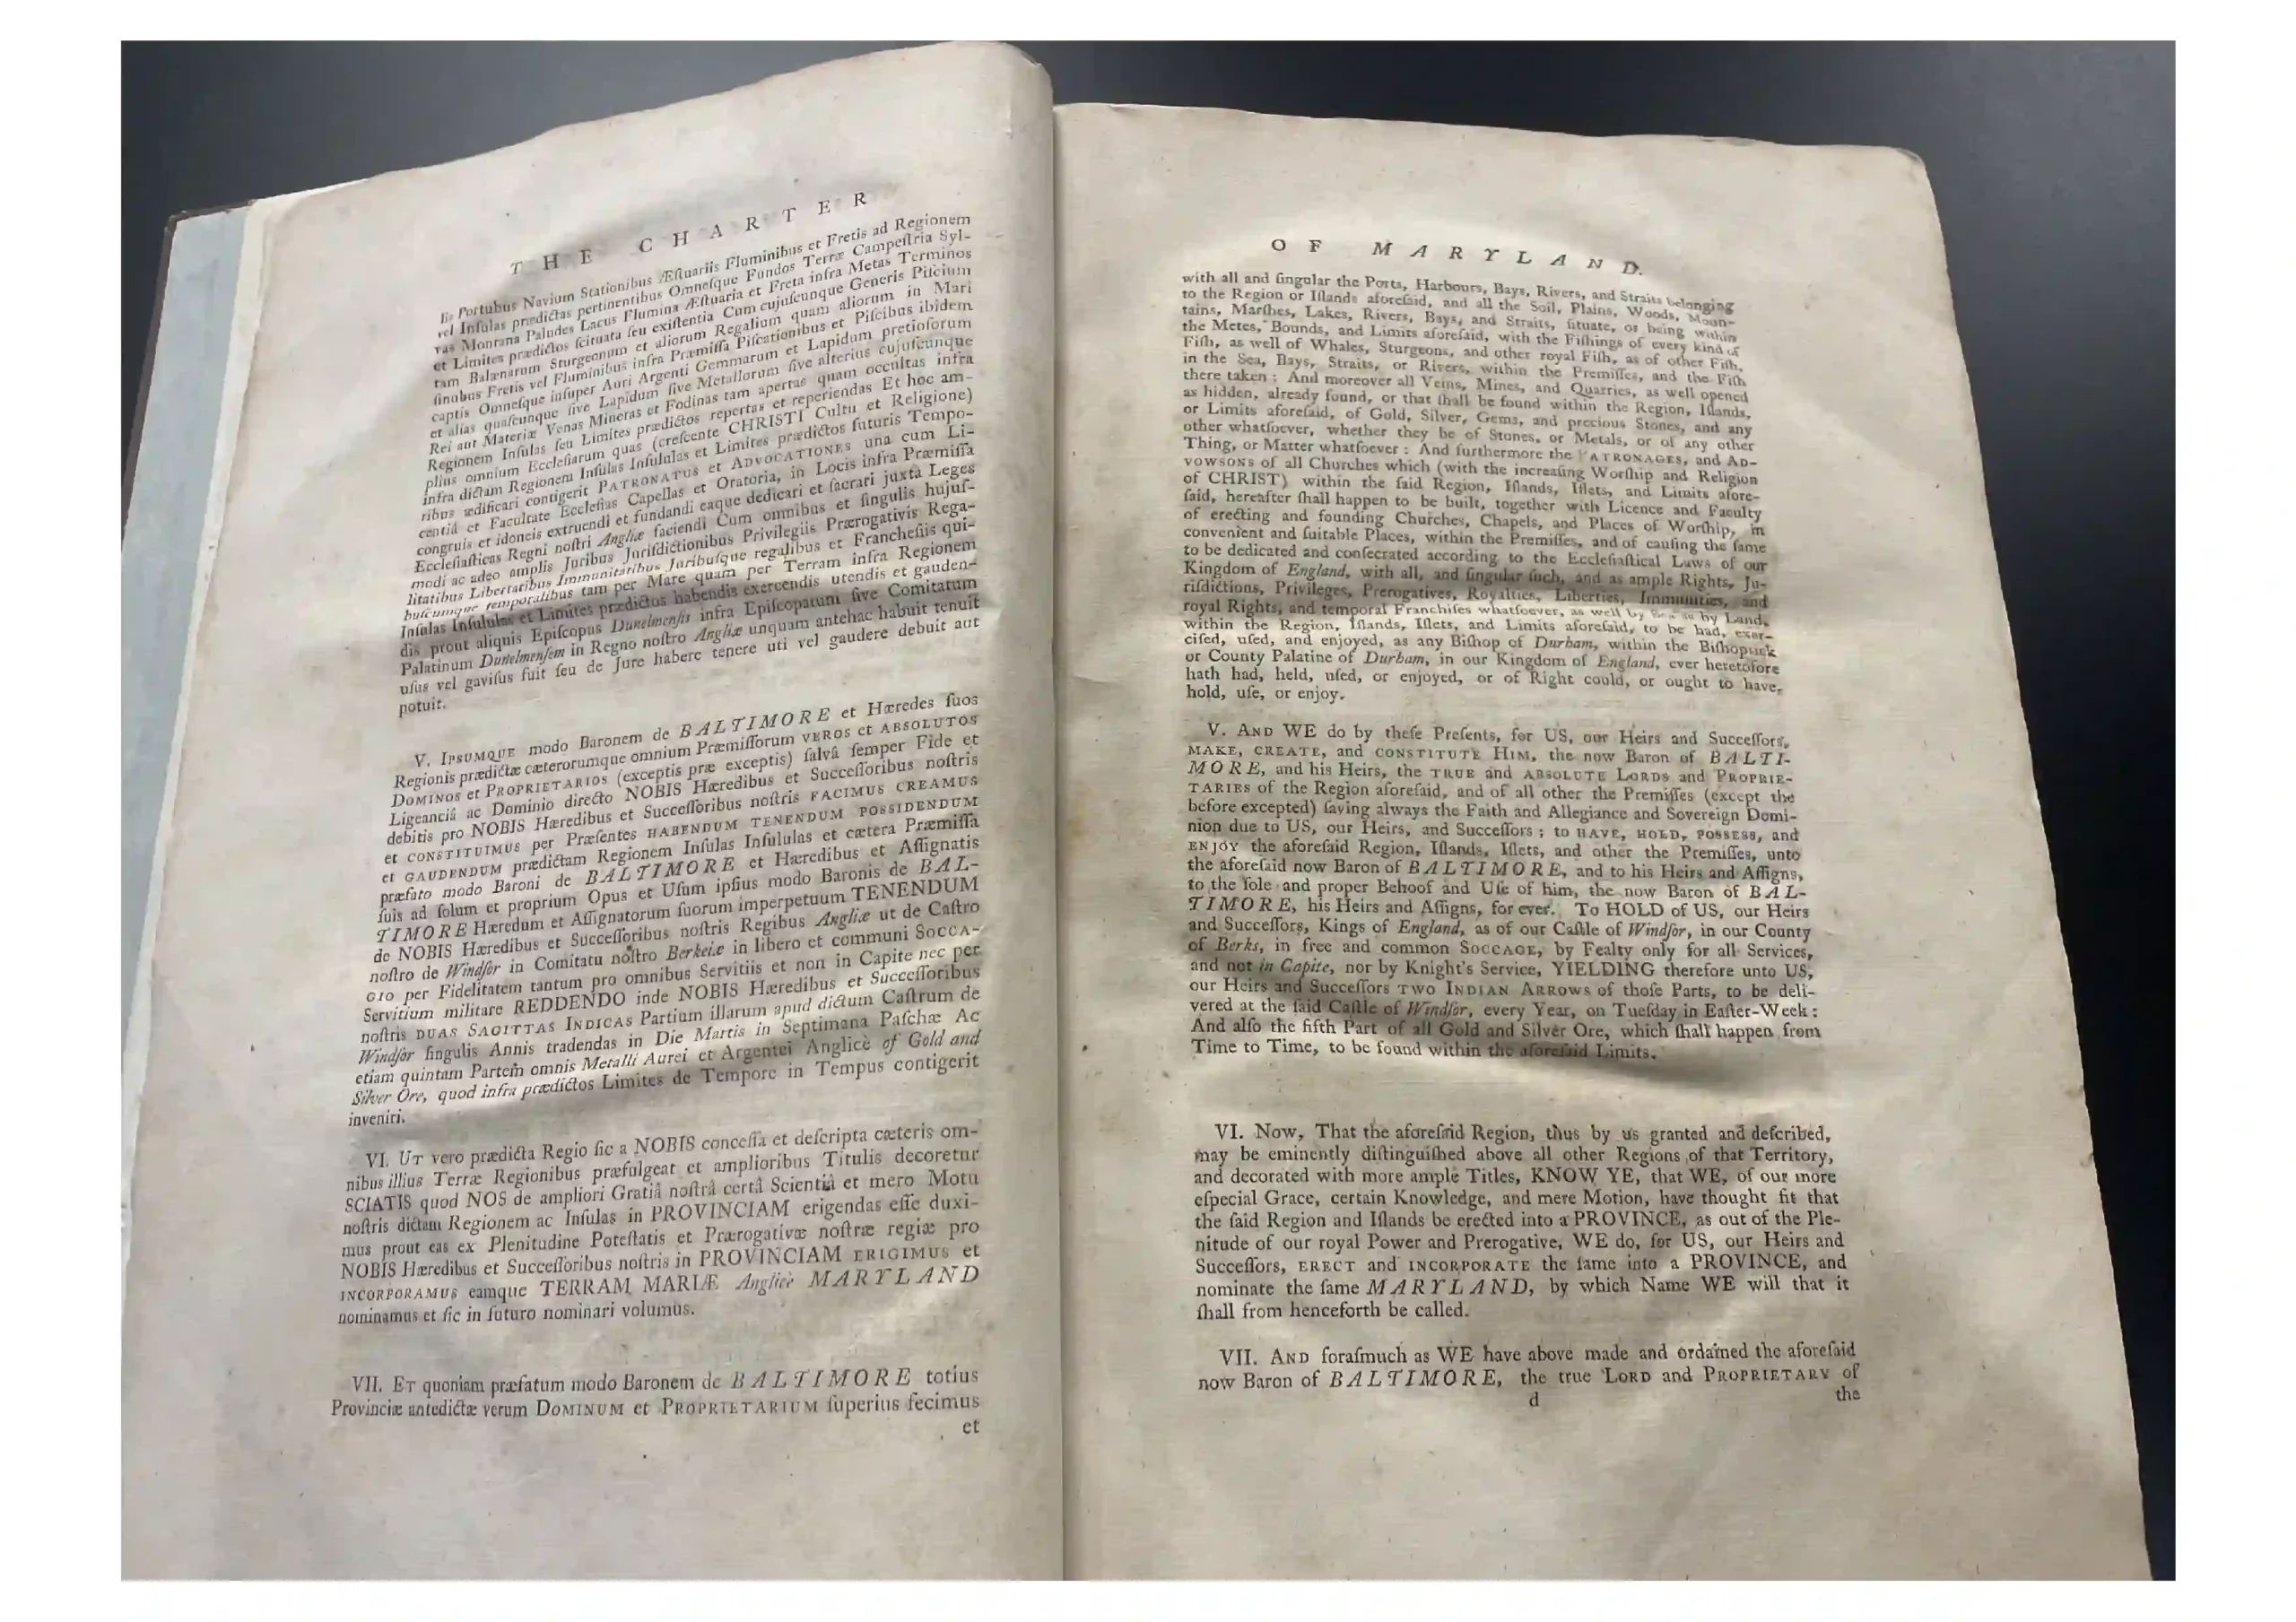 THE CHARTER
lis Portubus Navium Stationibus Æſtuariis Fluminibus et Fretis ad Regionem
vel Inſulas prædictas pertinentibus Omneſque Fundos Terræ Campeſtria Syl-
vas Montana Paludes Lacus Flumina Æſtuaria et Freta infra Metas Terminos
et Limites prædictos ſcituata ſeu exiſtentia Cum cujuſcunque Generis Piſcium
tam Balænarum Sturgeonum et aliorum Regalium quam aliorum in Mari
ſinubus Fretis vel Fluminibus infra Præmiſſa Piſcationibus et Piſcibus ibidem
captis Omneſque inſuper Auri Argenti Gemmarum et Lapidum pretioſorum
et alias quaſcunque ſive Lapidum ſive Metallorum ſive alterius cujuſcunque
Rei aut Materiæ Venas Mineras et Fodinas tam apertas quam occultas infra
Regionem Inſulas ſeu Limites prædictos repertas et reperiendas Et hoc am-
plius omnium Eccleſiarum quas (creſcente CHRISTI Cultu et Religione)
infra dictam Regionem Inſulas Inſululas et Limites prædictos futuris Tempo-
ribus ædificari contigerit PATRONATUS et ADVOCATIONES una cum Li-
centiâ et Facultate Eccleſias Capellas et Oratoria, in Locis infra Præmiſſa
congruis et idoneis extruendi et fundandi eaque dedicari et ſacrari juxta Leges
Eccleſiaſticas Regni noſtri Angliæ faciendi Cum omnibus et ſingulis hujuſ-
modi ac adeo amplis Juribus Juriſdictionibus Privilegiis Prærogativis Rega-
litatibus Libertatibus Immunitatibus Juribuſque regalibus et Francheſiis qui-
buſcumque temporalibus tam per Mare quam per Terram infra Regionem
Inſulas Inſululas et Limites prædictos habendis exercendis utendis et gauden-
dis prout aliquis Epiſcopus Dunelmenſis infra Epiſcopatum ſive Comitatum
Palatinum Dunelmenſem in Regno noſtro Angliæ unquam antehac habuit tenuit
uſus vel gaviſus fuit ſeu de Jure habere tenere uti vel gaudere debuit aut
potuit.
V. IPSUMQUE modo Baronem de BALTIMORE et Hæredes ſuos
Regionis prædictæ cæterorumque omnium Præmiſſorum VEROS et ABSOLUTOS
DOMINOS et PROPRIETARIOS (exceptis præ exceptis) ſalvâ ſemper Fide et
Ligeanciâ ac Dominio directo NOBIS Hæredibus et Succeſſoribus noſtris
debitis pro NOBIS Hæredibus et Succeſſoribus noſtris FACIMUS CREAMUS
et CONSTITUIMUS per Præſentes HABENDUM TENENDUM POSSIDENDUM
et GAUDENDUM prædictam Regionem Inſulas Inſululas et cætera Præmiſſa
præfato modo Baroni de BALTIMORE et Hæredibus et Aſſignatis
ſuis ad ſolum et proprium Opus et Uſum ipſius modo Baronis de BAL-
TIMORE Hæredum et Aſſignatorum ſuorum imperpetuum TENENDUM
de NOBIS Hæredibus et Succeſſoribus noſtris Regibus Angliæ ut de Caſtro
noſtro de Windſor in Comitatu noſtro Berkeiæ in libero et communi SOCCA-
GIO per Fidelitatem tantum pro omnibus Servitiis et non in Capite nec per
Servitium militare REDDENDO inde NOBIS Hæredibus et Succeſſoribus
noſtris DUAS SAGITTAS INDICAS Partium illarum apud dictum Caſtrum de
Windſor ſingulis Annis tradendas in Die Martis in Septimana Paſchæ Ac
etiam quintam Partem omnis Metalli Aurei et Argentei Anglicè of Gold and
Silver Ore, quod infra prædictos Limites de Tempore in Tempus contigerit
inveniri.
VI. UT vero prædicta Regio ſic a NOBIS conceſſa et deſcripta cæteris om-
nibus illius Terræ Regionibus præfulgeat et amplioribus Titulis decoretur
SCIATIS quod NOS de ampliori Gratiâ noſtrâ certâ Scientiâ et mero Motu
noſtris dictam Regionem ac Inſulas in PROVINCIAM erigendas eſſe duxi-
mus prout eas ex Plenitudine Poteſtatis et Prærogativæ noſtræ regiæ pro
NOBIS Hæredibus et Succeſſoribus noſtris in PROVINCIAM ERIGIMUS et
INCORPORAMUS eamque TERRAM MARIÆ Anglicè MARYLAND
nominamus et ſic in futuro nominari volumus.
VII. ET quoniam præfatum modo Baronem de BALTIMORE totius
Provinciæ antedictæ verum DOMINUM et PROPRIETARIUM ſuperius fecimus
et
OF MARYLAND.
with all and ſingular the Ports, Harbours, Bays, Rivers, and Straits belonging
to the Region or Iſlands aforeſaid, and all the Soil, Plains, Woods, Moun-
tains, Marſhes, Lakes, Rivers, Bays, and Straits, ſituate, or being within
the Metes, Bounds, and Limits aforeſaid, with the Fiſhings of every kind of
Fiſh, as well of Whales, Sturgeons, and other royal Fiſh, as of other Fiſh,
in the Sea, Bays, Straits, or Rivers, within the Premiſſes, and the Fiſh
there taken : And moreover all Veins, Mines, and Quarries, as well opened
as hidden, already found, or that ſhall be found within the Region, Iſlands,
or Limits aforeſaid, of Gold, Silver, Gems, and precious Stones, and any
other whatſoever, whether they be of Stones, or Metals, or of any other
Thing, or Matter whatſoever : And furthermore the PATRONAGES, and AD-
VOWSONS of all Churches which (with the increaſing Worſhip and Religion
of CHRIST) within the ſaid Region, Iſlands, Iſlets, and Limits afore-
ſaid, hereafter ſhall happen to be built, together with Licence and Faculty
of erecting and founding Churches, Chapels, and Places of Worſhip, in
convenient and ſuitable Places, within the Premiſſes, and of cauſing the ſame
to be dedicated and conſecrated according to the Eccleſiaſtical Laws of our
Kingdom of England, with all, and ſingular ſuch, and as ample Rights, Ju-
riſdictions, Privileges, Prerogatives, Royalties, Liberties, Immunities, and
royal Rights, and temporal Franchiſes whatſoever, as well by Sea as by Land,
within the Region, Iſlands, Iſlets, and Limits aforeſaid, to be had, exer-
ciſed, uſed, and enjoyed, as any Biſhop of Durham, within the Biſhoprick
or County Palatine of Durham, in our Kingdom of England, ever heretofore
hath had, held, uſed, or enjoyed, or of Right could, or ought to have,
hold, uſe, or enjoy.
V. AND WE do by theſe Preſents, for US, our Heirs and Succeſſors,
MAKE, CREATE, and CONSTITUTE HIM, the now Baron of BALTI-
MORE, and his Heirs, the TRUE and ABSOLUTE LORDS and PROPRIE-
TARIES of the Region aforeſaid, and of all other the Premiſſes (except the
before excepted) ſaving always the Faith and Allegiance and Sovereign Domi-
nion due to US, our Heirs, and Succeſſors ; to HAVE, HOLD, POSSESS, and
ENJOY the aforeſaid Region, Iſlands, Iſlets, and other the Premiſſes, unto
the aforeſaid now Baron of BALTIMORE, and to his Heirs and Aſſigns,
to the ſole and proper Behoof and Uſe of him, the now Baron of BAL-
TIMORE, his Heirs and Aſſigns, for ever. To HOLD of US, our Heirs
and Succeſſors, Kings of England, as of our Caſtle of Windſor, in our County
of Berks, in free and common SOCCAGE, by Fealty only for all Services,
and not in Capite, nor by Knight's Service, YIELDING therefore unto US,
our Heirs and Succeſſors TWO INDIAN ARROWS of thoſe Parts, to be deli-
vered at the ſaid Caſtle of Windſor, every Year, on Tueſday in Eaſter-Week :
And alſo the fifth Part of all Gold and Silver Ore, which ſhall happen from
Time to Time, to be found within the aforeſaid Limits.
VI. Now, That the aforeſaid Region, thus by us granted and deſcribed,
may be eminently diſtinguiſhed above all other Regions of that Territory,
and decorated with more ample Titles, KNOW YE, that WE, of our more
eſpecial Grace, certain Knowledge, and mere Motion, have thought fit that
the ſaid Region and Iſlands be erected into a PROVINCE, as out of the Ple-
nitude of our royal Power and Prerogative, WE do, for US, our Heirs and
Succeſſors, ERECT and INCORPORATE the ſame into a PROVINCE, and
nominate the ſame MARYLAND, by which Name WE will that it
ſhall from henceforth be called.
VII. AND foraſmuch as WE have above made and ordained the aforeſaid
now Baron of BALTIMORE, the true LORD and PROPRIETARY of
d the